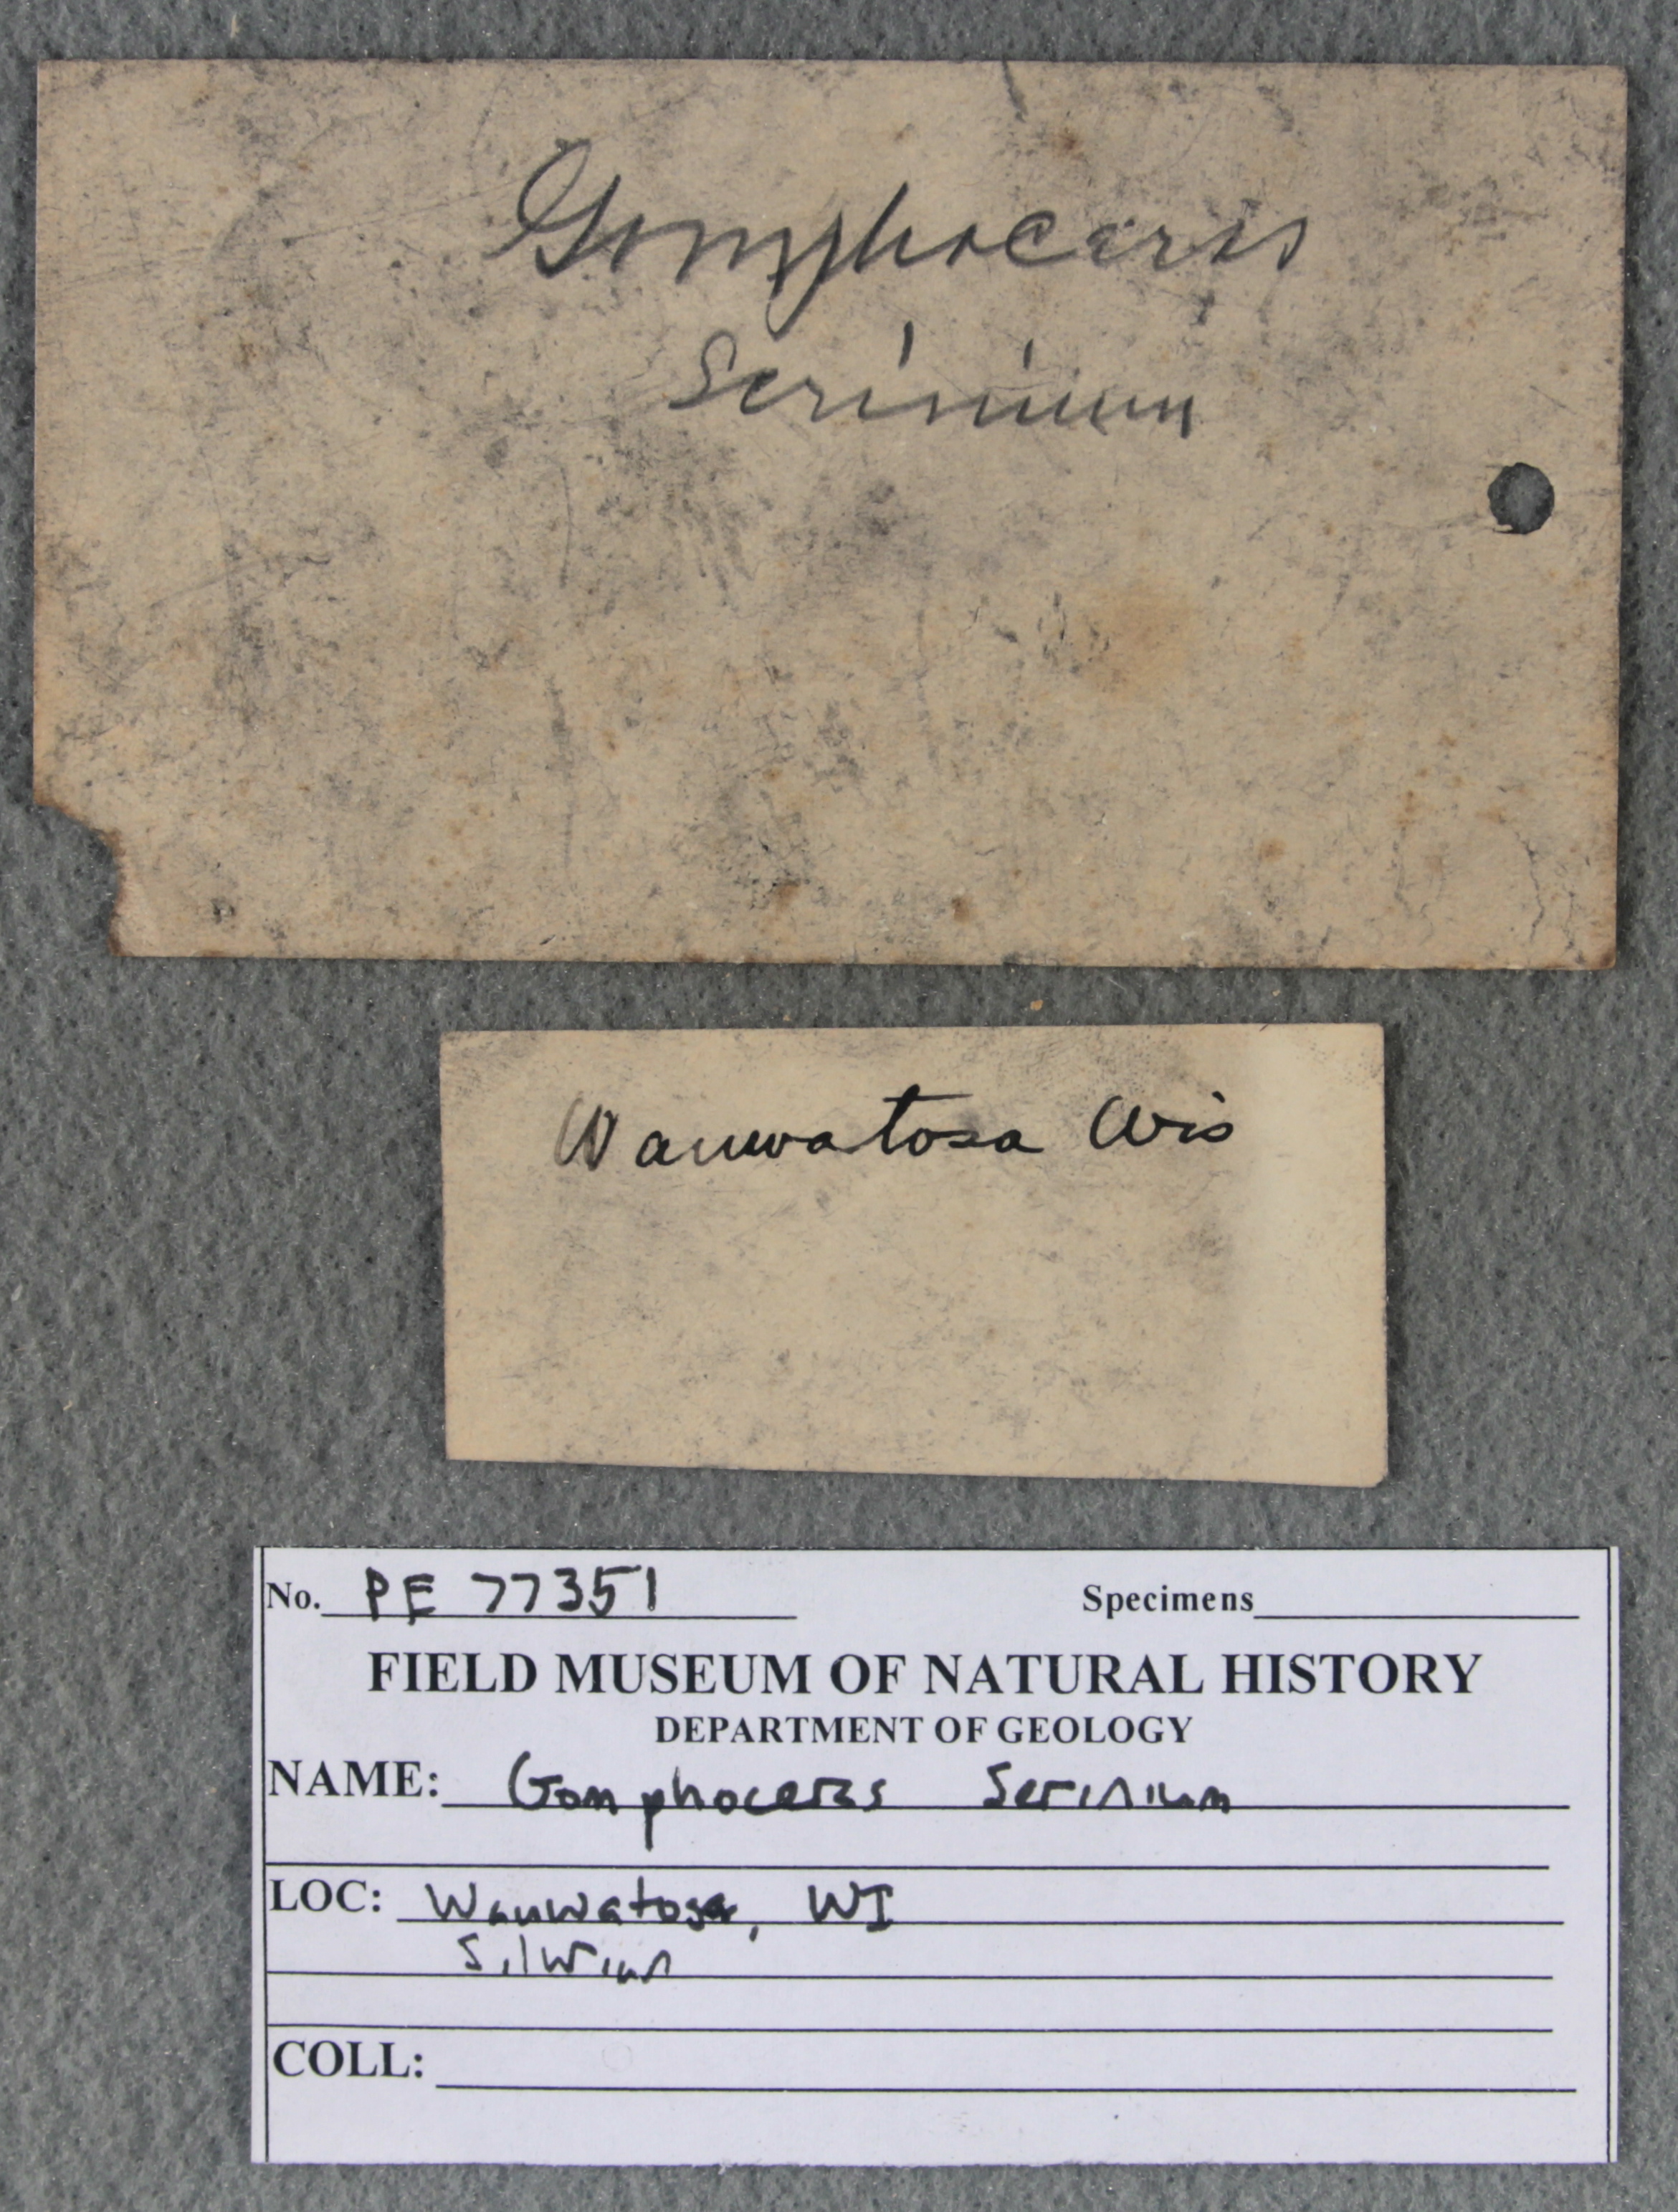 Gomphoceras
Serinium
Wauwatosa Wis
No. PE 77351 Specimens
FIELD MUSEUM OF NATURAL HISTORY
DEPARTMENT OF GEOLOGY
NAME: Gomphoceras Serinium
LOC: Wauwatosa, WI
Silurian
COLL: